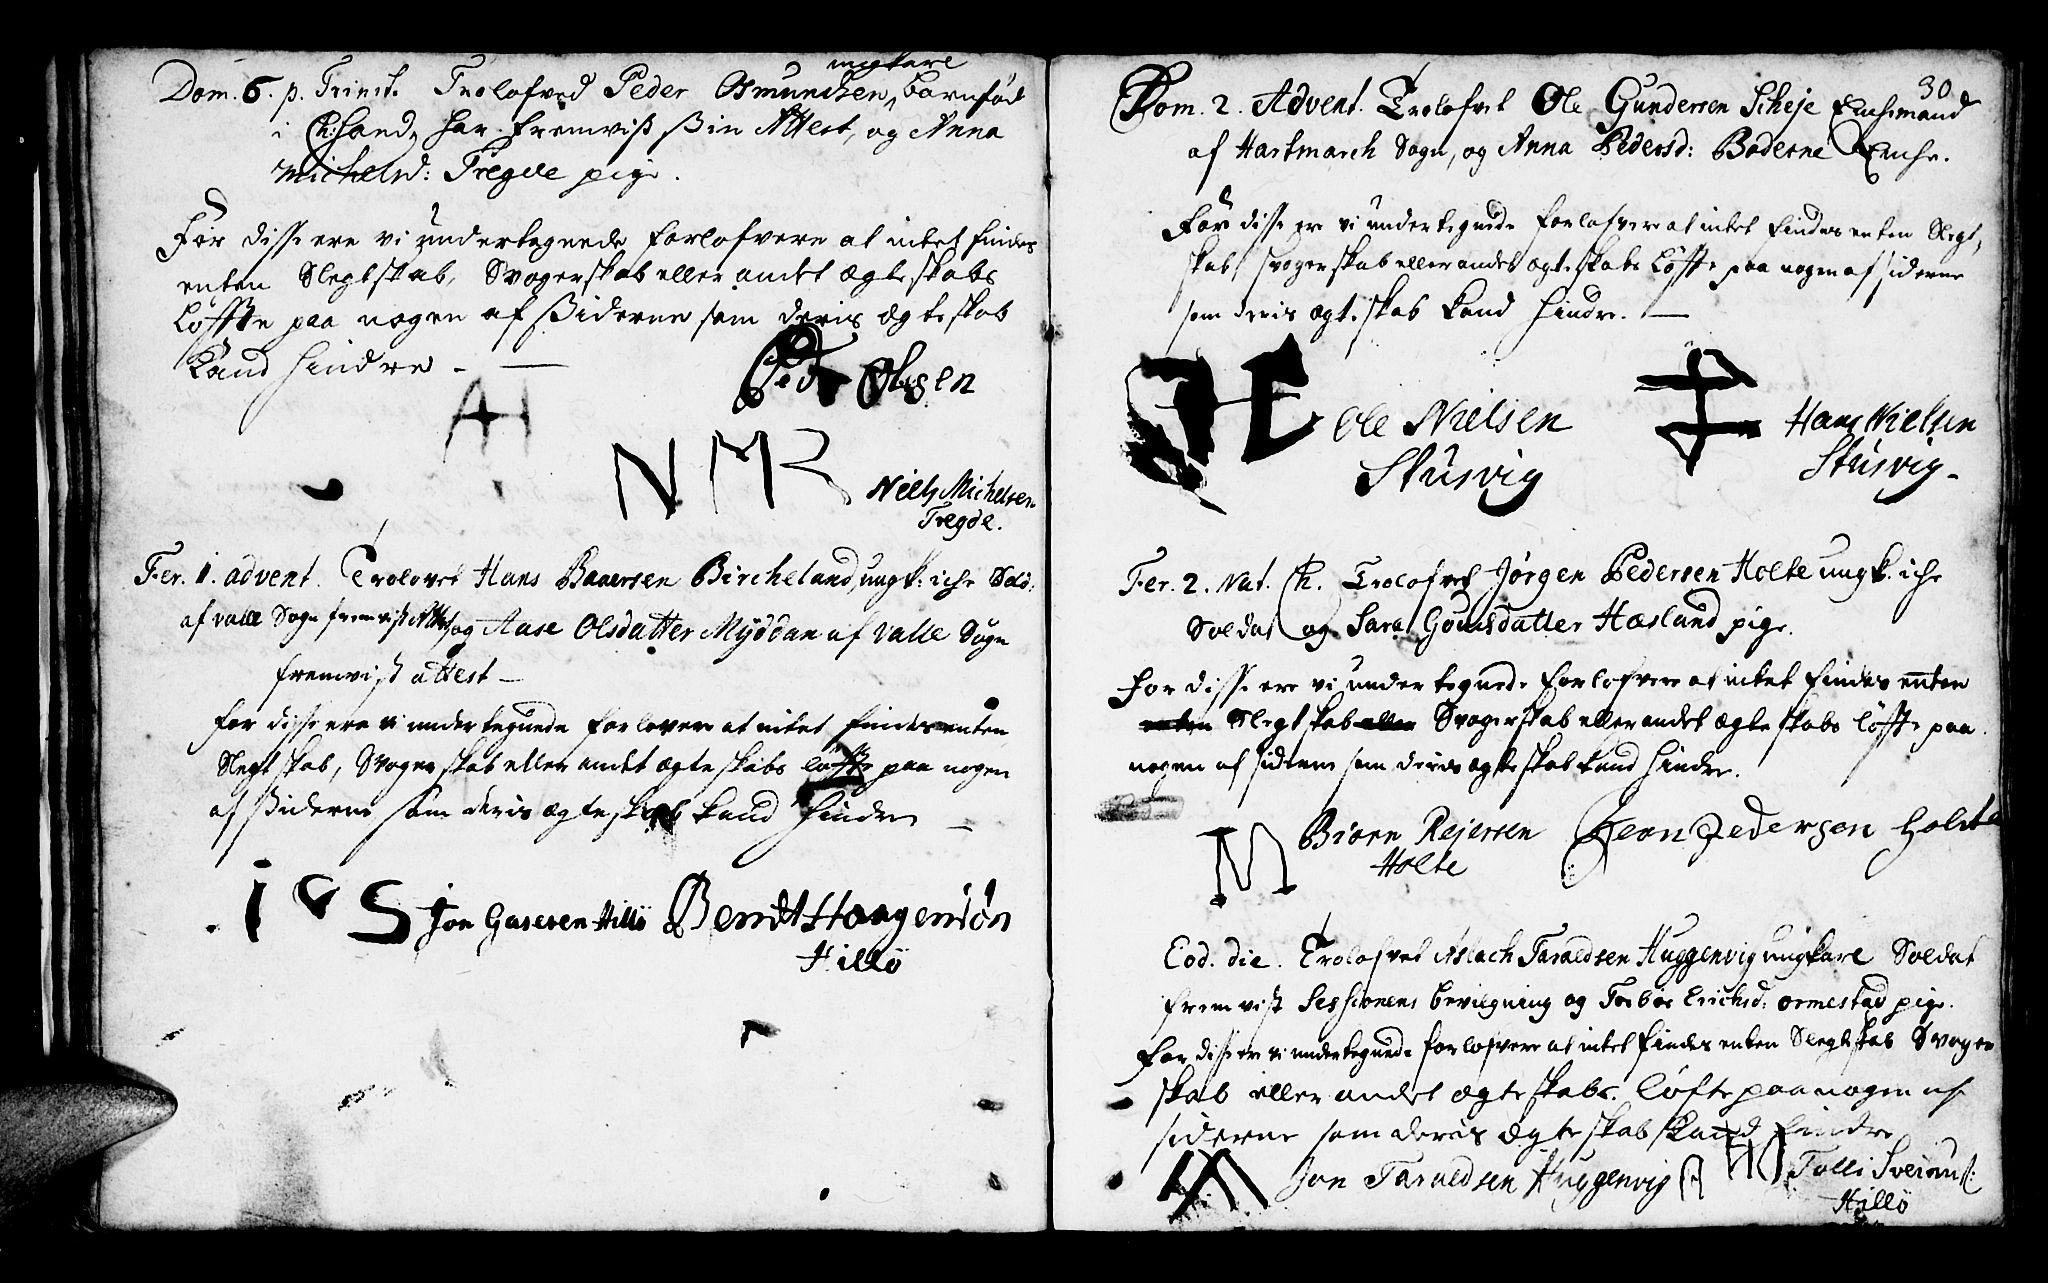 ungkarl
Dom. 6. p. Trinit. Trolofved Peder Osmundsen, barnfød
i Chsand, har fremvist sin Attest, og Anna
Michelsd: Tregde pige.
For disse ere vi undertegnede forlofvere at intet findes
enten Slegtskab, Svogerskab eller andet ægteskabs
Løffte paa nogen af Siderne som deris ægteskab
kand hindre. —
Ped Olsen
AH
N M
Niels Michelsen
Tregde.
Fer. 1. advent. Trolovet Hans Baaersen Bircheland, ungk: ichr Sold:
af valle Sogn fremvist Attest og Aase Olsdatter Myddan af valle Sogn
fremvist attest —
for disse ere vi undertegnede forlovere at intet findes enten
Slegtskab, Svogerskab eller andet ægteskabs løffte paa nogen
af Siderne som deris ægteskab kand hindre —
I S Jon Gasesen Hillö Berndt Haagensön
Hillö
30
Dom. 2. Advent. Trolofvet Ole Gundersen Scheje Enchemand
af Hartmarch Sogn, og Anna Pedersd: Boderne Enche.
For disse ere vi undertegnede forlofvere at intet findes enten Slegt,
skab, svogerskab eller andet ægteskabs Løffte paa nogen af siderne
som deris ægteskab kand hindre. —
Ole Nielsen Hans Nielsen
Stusvig Stusvig —
Fer. 2. Nat. Ch. Trolofvet Jørgen Pedersen Holte ungk. ichr
Soldat og Sara Goutsdatter Hæsland pige.
for disse ere vi undertegnede forlofvere at intet findes enten
enten Slegtskab eller Svogerskab eller andet ægteskabs løffte paa
nogen af siderne som deris ægteskab kand hindre.
M Biørn Rejersen Jeon Pedersen Holte
Holte
Eod. die. Trolofvet Aslach Taraldsen Huggenvig ungkarl Soldat
fremvist Sessionens bevilgning og Torbør Erichsd: ormestad pige.
for disse ere vi undertegnede forlofvere at intet findes enten Slegtskab Svoger
skab eller andet ægteskabs løfte paa nogen af
siderne som deris ægteskab kand hindre
Jon Taraldsen Huggenvig Tolli Sveinus:
Hillö